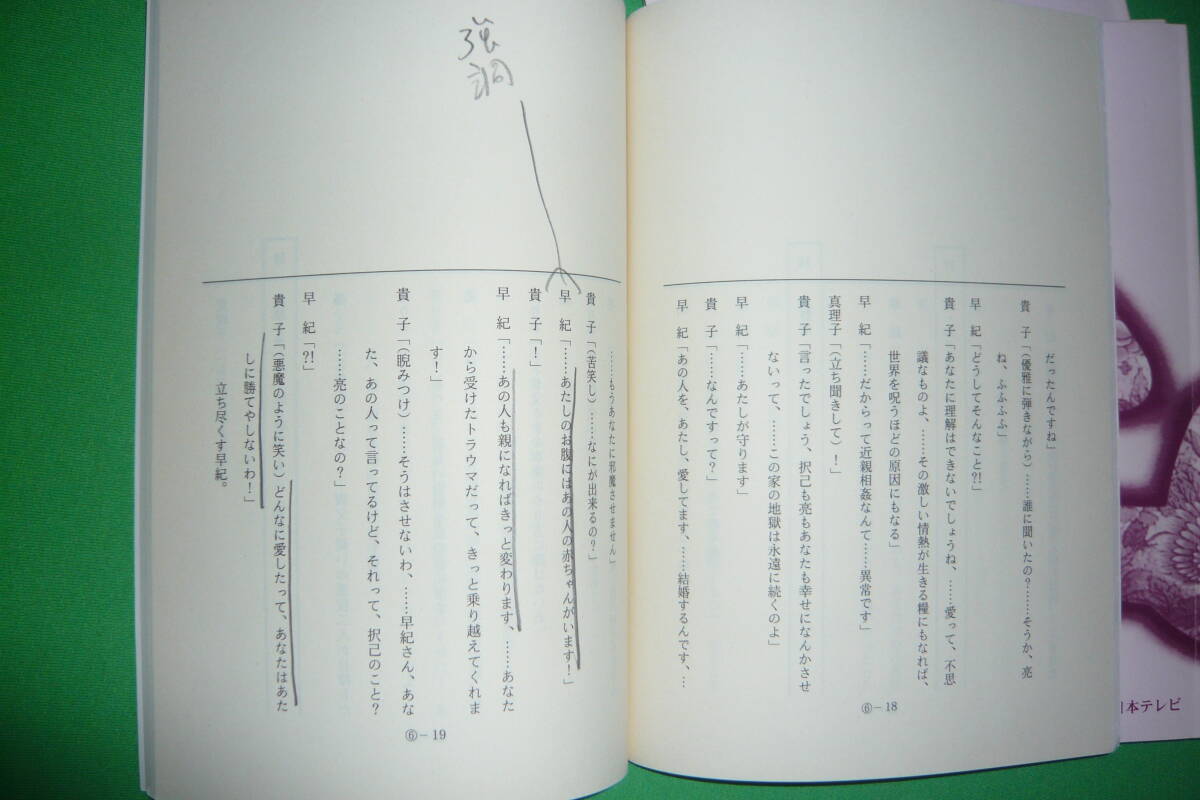 だったんですね」
貴　子「（優雅に弾きながら）……誰に聞いたの？……そうか、亮
ね、ふふふふ」
早　紀「どうしてそんなこと?!」
貴　子「あなたに理解はできないでしょうね、……愛って、不思
議なものよ、……その激しい情熱が生きる糧にもなれば、
世界を呪うほどの原因にもなる」
早　紀「……だからって近親相姦なんて……異常です」
真理子「（立ち聞きして）！」
貴　子「言ったでしょう、択己も亮もあなたも幸せになんかさせ
ないって、……この家の地獄は永遠に続くのよ」
早　紀「……あたしが守ります」
貴　子「……なんですって？」
早　紀「あの人を、あたし、愛してます、……結婚するんです、…
⑥－18
……もうあなたに邪魔させません」
貴　子「（苦笑し）……なにが出来るの？」
早　紀「……あたしのお腹にはあの人の赤ちゃんがいます！」
貴　子「！」
早　紀「……あの人も親になればきっと変わります、……あなた
から受けたトラウマだって、きっと乗り越えてくれま
す！」
貴　子「（睨みつけ）……そうはさせないわ、……早紀さん、あな
た、あの人って言ってるけど、それって、択己のこと？
……亮のことなの？」
早　紀「?!」
貴　子「（悪魔のように笑い）どんなに愛したって、あなたはあた
しに勝てやしないわ！」
立ち尽くす早紀。
⑥－19
強調
日本テレビ